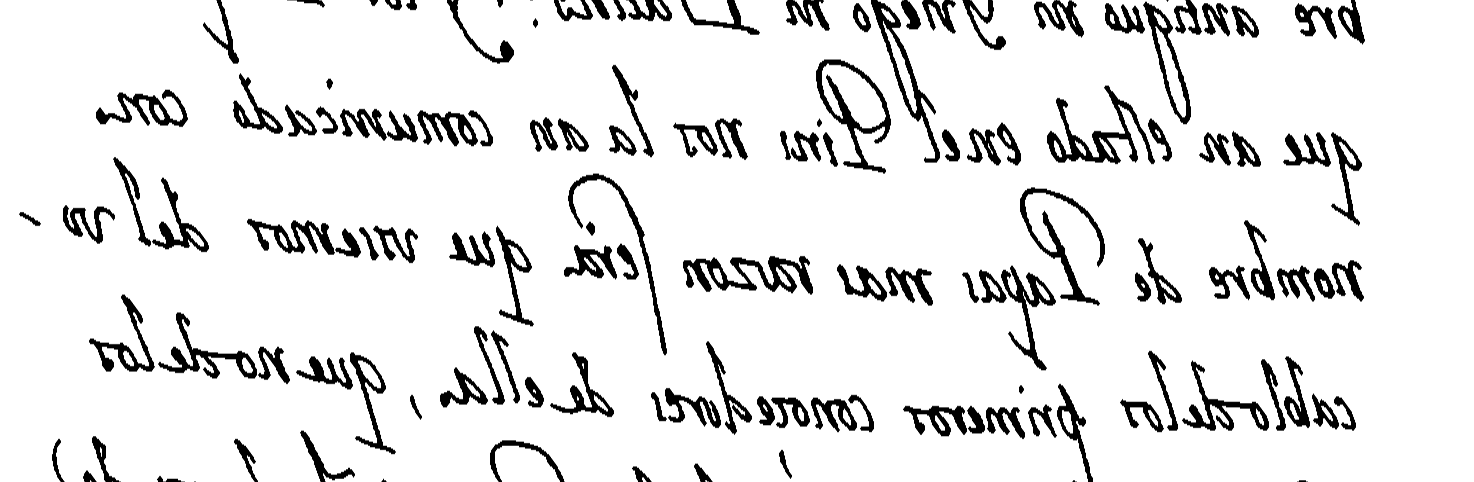 bre antiguo ni Griego ni Latino;
que an estado enel Piru nos la an comunicado con
nombre de Papas mas razon será que vsemos del vo-
cablo delos primeros conocedores de ella, que no delos